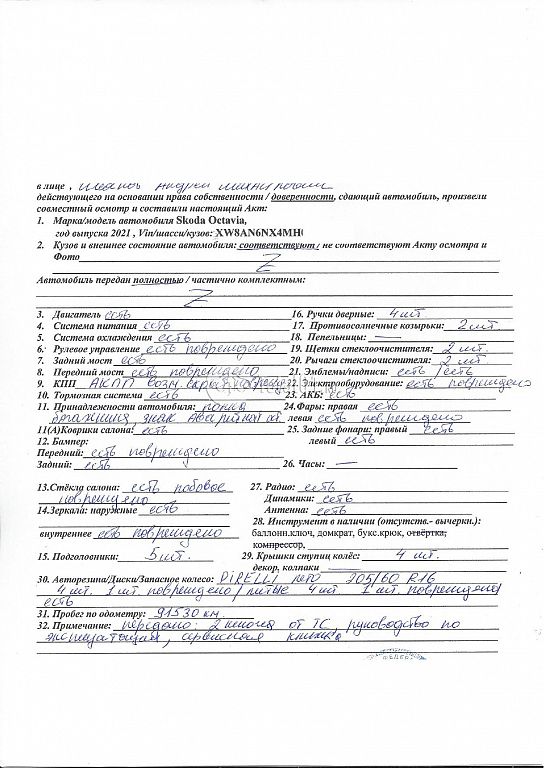 в лице , Иванов Андрей
действующего на основании права собственности / доверенности, сдающий автомобиль, произвели
совместный осмотр и составили настоящий Акт:
1. Марка/модель автомобиля Skoda Octavia,
год выпуска 2021 , Vin/шасси/кузов: XW8AN6NX4MH
2. Кузов и внешнее состояние автомобиля: соответствуют / не соответствуют Акту осмотра и
Фото Z
Автомобиль передан полностью / частично комплектным:
Z
3. Двигатель есть 16. Ручки дверные: 4 шт.
4. Система питания есть 17. Противосолнечные козырьки: 2 шт.
5. Система охлаждения есть 18. Пепельницы: —
6. Рулевое управление есть повреждено 19. Щетки стеклоочистителя: 2 шт.
7. Задний мост есть 20. Рычаги стеклоочистителя: 2 шт.
8. Передний мост есть повреждено 21. Эмблемы/надписи: есть / есть
9. КПП АКПП возм. скрыт. повреж 22. Электрооборудование: есть повреждено
10. Тормозная система есть 23. АКБ: есть
11. Принадлежности автомобиля: полка 24.Фары: правая есть
багажника, знак аварийной ост. левая есть повреждено
11(А)Коврики салона: есть 25. Задние фонари: правый есть
12. Бампер: левый есть
Передний: есть повреждено
Задний: есть 26. Часы: —
13.Стёкла салона: есть лобовое 27. Радио: есть
повреждено Динамики: есть
14.Зеркала: наружные есть Антенна: есть
28. Инструмент в наличии (отсутств.- вычеркн.):
внутреннее есть повреждено баллонн.ключ, домкрат, букс.крюк, отвёртка,
компрессор,
15. Подголовники: 5 шт. 29. Крышки ступиц колёс: 4 шт.
декор, колпаки —
30. Авторезина/Диски/Запасное колесо: PIRELLI лето 205/60 R16
4 шт. 1 шт. повреждено / литые 4 шт. 1 шт. повреждено/
есть
31. Пробег по одометру: 91530 км
32. Примечание: передано: 2 ключа от ТС, руководство по
эксплуатации, сервисная книжка